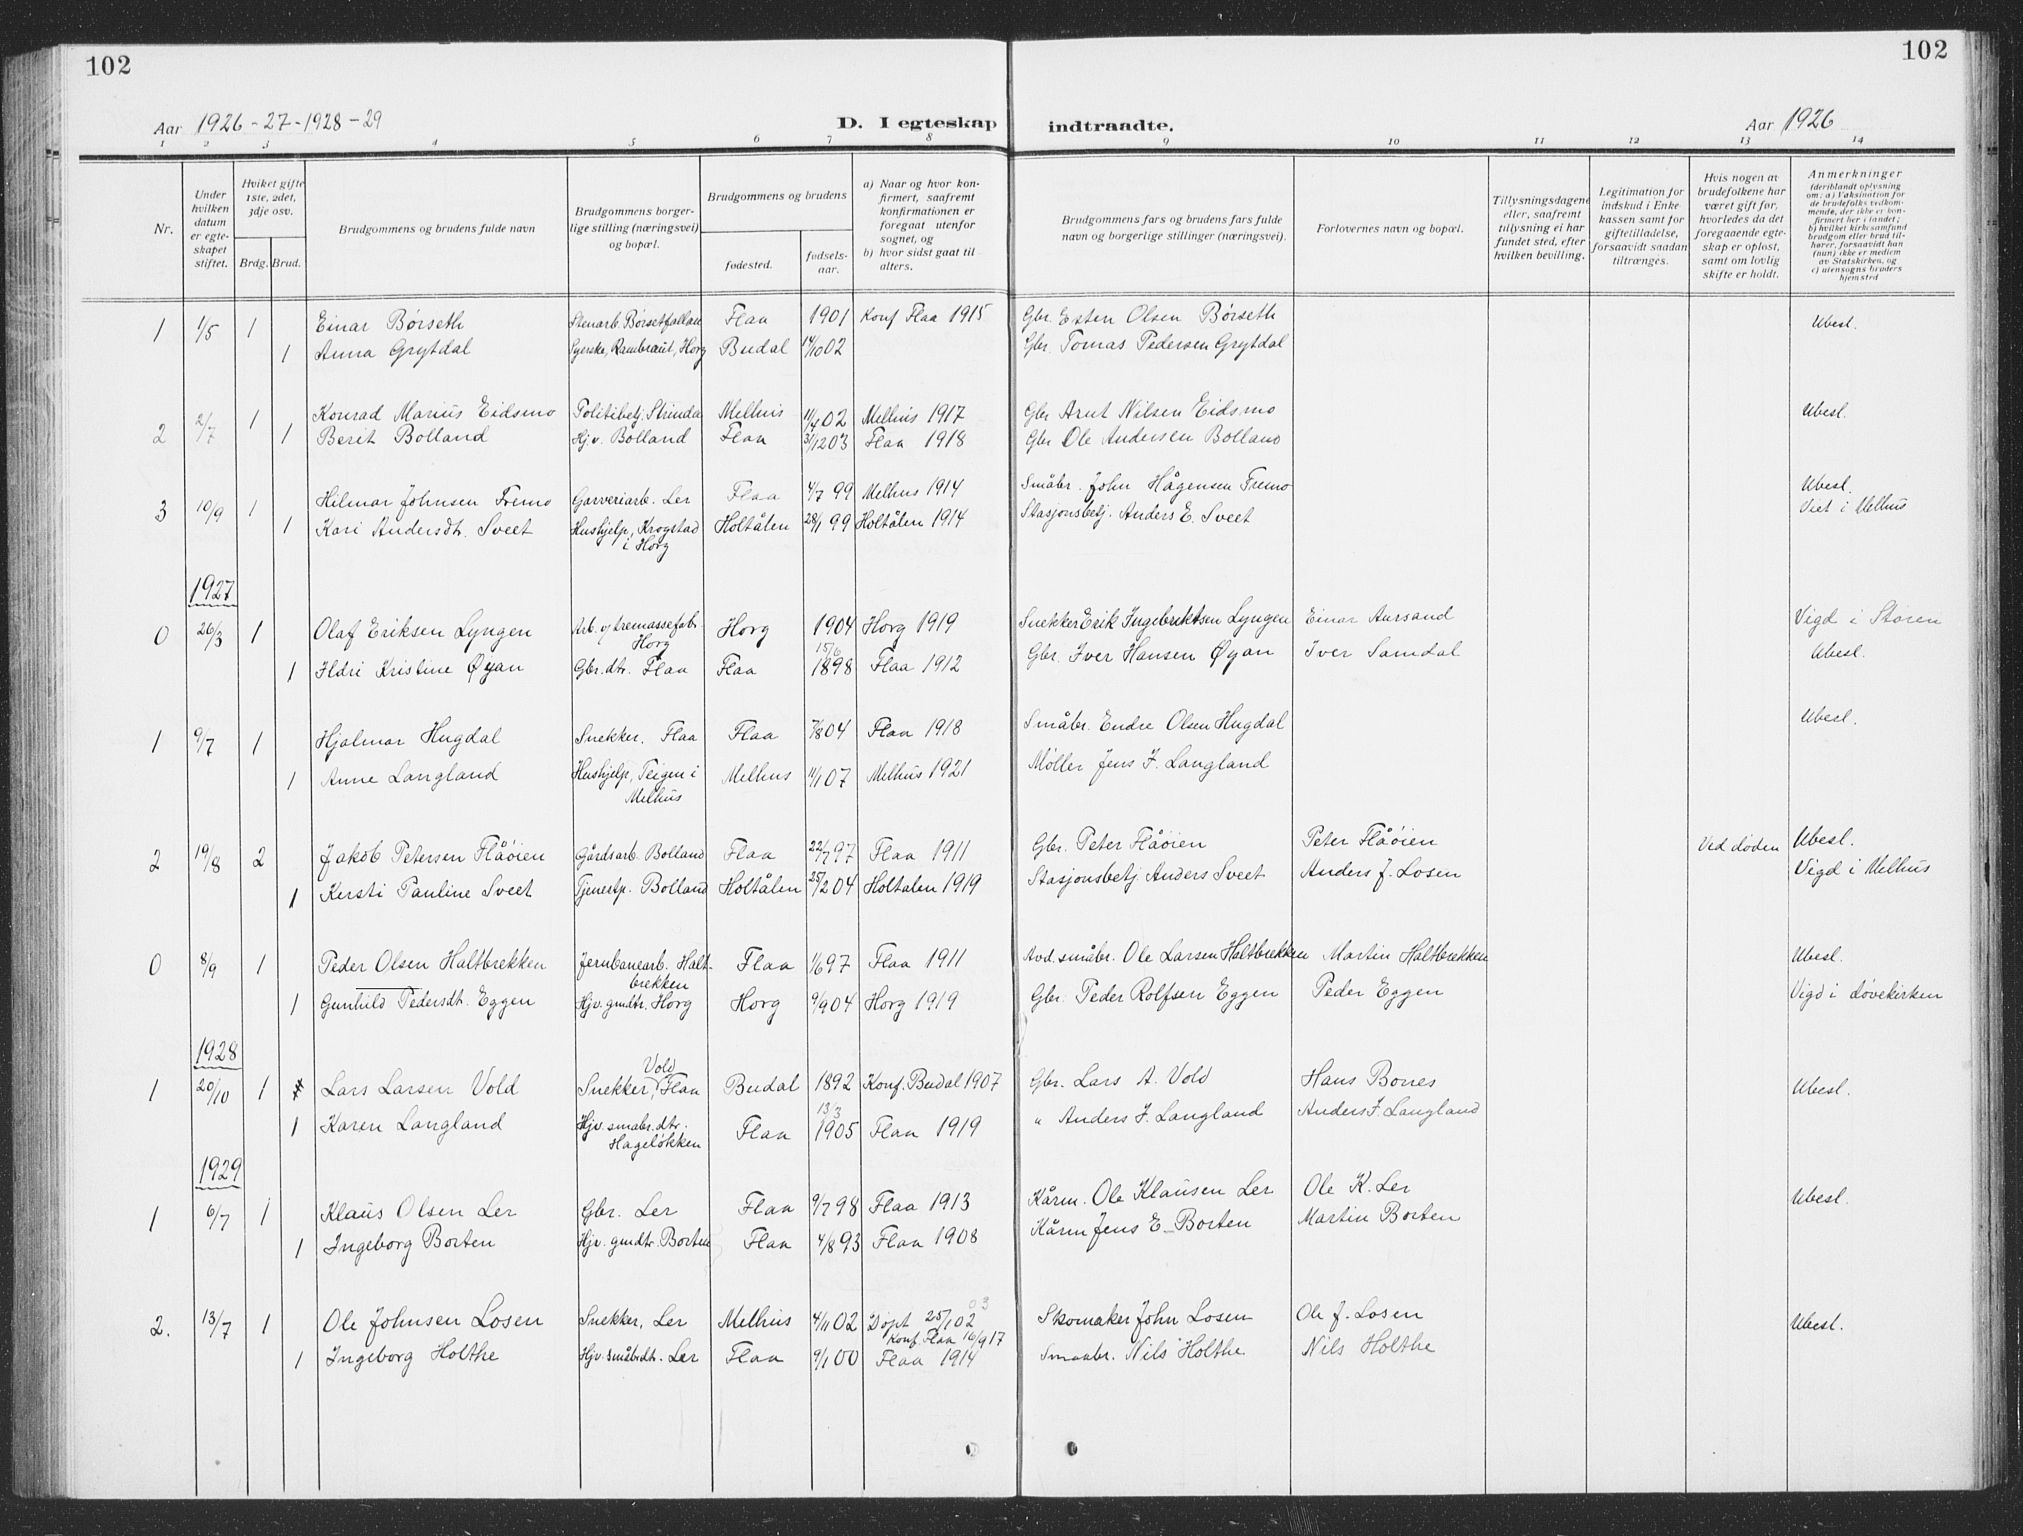 102
102
Aar 1926-27-1928-29
D. I egteskap indtraadte.
Aar 1926
1 2 3 4 5 6 7 8 9 10 11 12 13 14
Nr.
Under hvilken datum er egteskapet stiftet.
Hviket gifte 1ste, 2det, 3dje osv.
Brdg. Brud.
Brudgommens og brudens fulde navn
Brudgommens borgerlige stilling (næringsvei) og bopæl.
Brudgommens og brudens
fødested.
fødselsaar.
a) Naar og hvor konfirmert, saafremt konfirmationen er foregaat utenfor sognet, og
b) hvor sidst gaat til alters.
Brudgommens fars og brudens fars fulde navn og borgerlige stillinger (næringsvei).
Forlovernes navn og bopæl.
Tillysningsdagene eller, saafremt tillysning ei har fundet sted, efter hvilken bevilling.
Legitimation for indskud i Enkekassen samt for giftetilladelse, forsaavidt saadan tiltrænges.
Hvis nogen av brudefolkene har været gift før, hvorledes da det foregaaende egteskap er opløst, samt om lovlig skifte er holdt.
Anmerkninger (deriblandt oplysning om: a) Vaksination for de brudefolks vedkommende, der ikke er konfirmert her i landet; b) hvilket kirkesamfund brudgom eller brud tilhører, forsaavidt han (hun) ikke er medlem av Statskirken, og c) utensogns bruders hjemsted
1 1/5 1 Einar Børseth Stenarb. Børsetfallan Flaa 1901 Konf Flaa 1915 Gbr. Esten Olsen Børseth Ubesl.
1 Anna Grytdal Syerske, Rambraut, Horg Budal 14/10 02 Gbr. Tomas Pedersen Grytdal
2 2/7 1 Konrad Marius Eidsmo Politibetj. Strinda Melhus 1/4 02 Melhus 1917 Gbr Arnt Nilsen Eidsmo Ubesl.
1 Berit Bolland Hjv. Bolland Flaa 3/12 03 Flaa 1918 Gbr Ole Andersen Bolland
3 10/9 1 Hilmar Johnsen Fremo Garveriarb. Ler Flaa 4/7 99 Melhus 1914 Småbr. John Hågensen Fremo Ubesl.
1 Kari Andersdt. Sveet Hushjelp, Krogstad i Horg Holtålen 28/1 99 Holtålen 1914 Stasjonsbetj. Anders E. Sveet Viet i Melhus
1927
0 26/3 1 Olaf Eriksen Lyngen Arb. v/ tremassefabr. Horg Horg 1904 Horg 1919 Snekker Erik Ingebriktsen Lyngen Einar Aursand Vigd i Støren
1 Ildri Kristine Øyan Gbr. dtr. Flaa Flaa 15/6 1898 Flaa 1912 Gbr. Iver Hansen Øyan Iver Samdal Ubesl.
1 9/7 1 Hjalmar Hugdal Snekker, Flaa Flaa 7/8 04 Flaa 1918 Småbr. Endre Olsen Hugdal Ubesl.
1 Anne Langland Hushjelp, Teigen i Melhus Melhus 11/1 07 Melhus 1921 Møller Jens J. Langland
2 19/8 2 Jakob Petersen Flåøien Gårdsarb. Bolland Flaa 22/7 97 Flaa 1911 Gbr. Peter Flåøien Peter Flåøien Ved døden Ubesl.
1 Kersti Pauline Sveet Tjenestp. Bolland Holtålen 25/2 04 Holtalen 1919 Stasjonsbetj Anders Sveet Anders J. Losen Vigd i Melhus
0 8/9 1 Peder Olsen Haltbrekken Jernbanearb. Haltbrekken Flaa 1/6 97 Flaa 1911 Avd. småbr. Ole Larsen Haltbrekken Martin Haltbrekken Ubesl.
1 Gunhild Pedersdt. Eggen Hjv. gmdtr. Horg Horg 9/9 04 Horg 1919 Gbr. Peder Rolfsen Eggen Peder Eggen Vigd i Døvekirken
1928
1 20/10 1 Lars Larsen Vold Snekker, Vold Flaa Budal 1892 Konf. Budal 1907 Gbr. Lars A. Vold Hans Bones Ubesl.
1 Karen Langland Hjv. smabr. dtr. Hageløkken Flaa 13/3 1905 Flaa 1919 " Anders J. Langland Anders J. Langland
1929
1 6/7 1 Klaus Olsen Ler Gbr. Ler Flaa 9/7 98 Flaa 1913 Kårm. Ole Klausen Ler Ole K. Ler Ubesl.
1 Ingeborg Borten Hjv. gmdtr. Borten Flaa 4/8 93 Flaa 1908 Kårm Jens E. Borten Martin Borten
2. 13/7 1 Ole Johnsen Losen Snekker, Ler Melhus 4/11 02 Døpt 25/1 02 03 Konf. Flaa 16/9 17 Skomaker John Losen Ole J. Losen Ubesl.
1 Ingeborg Holthe Hjv. småbrdt. Ler Flaa 9/1 00 Flaa 1914 Smaabr. Nils Holthe Nils Holthe